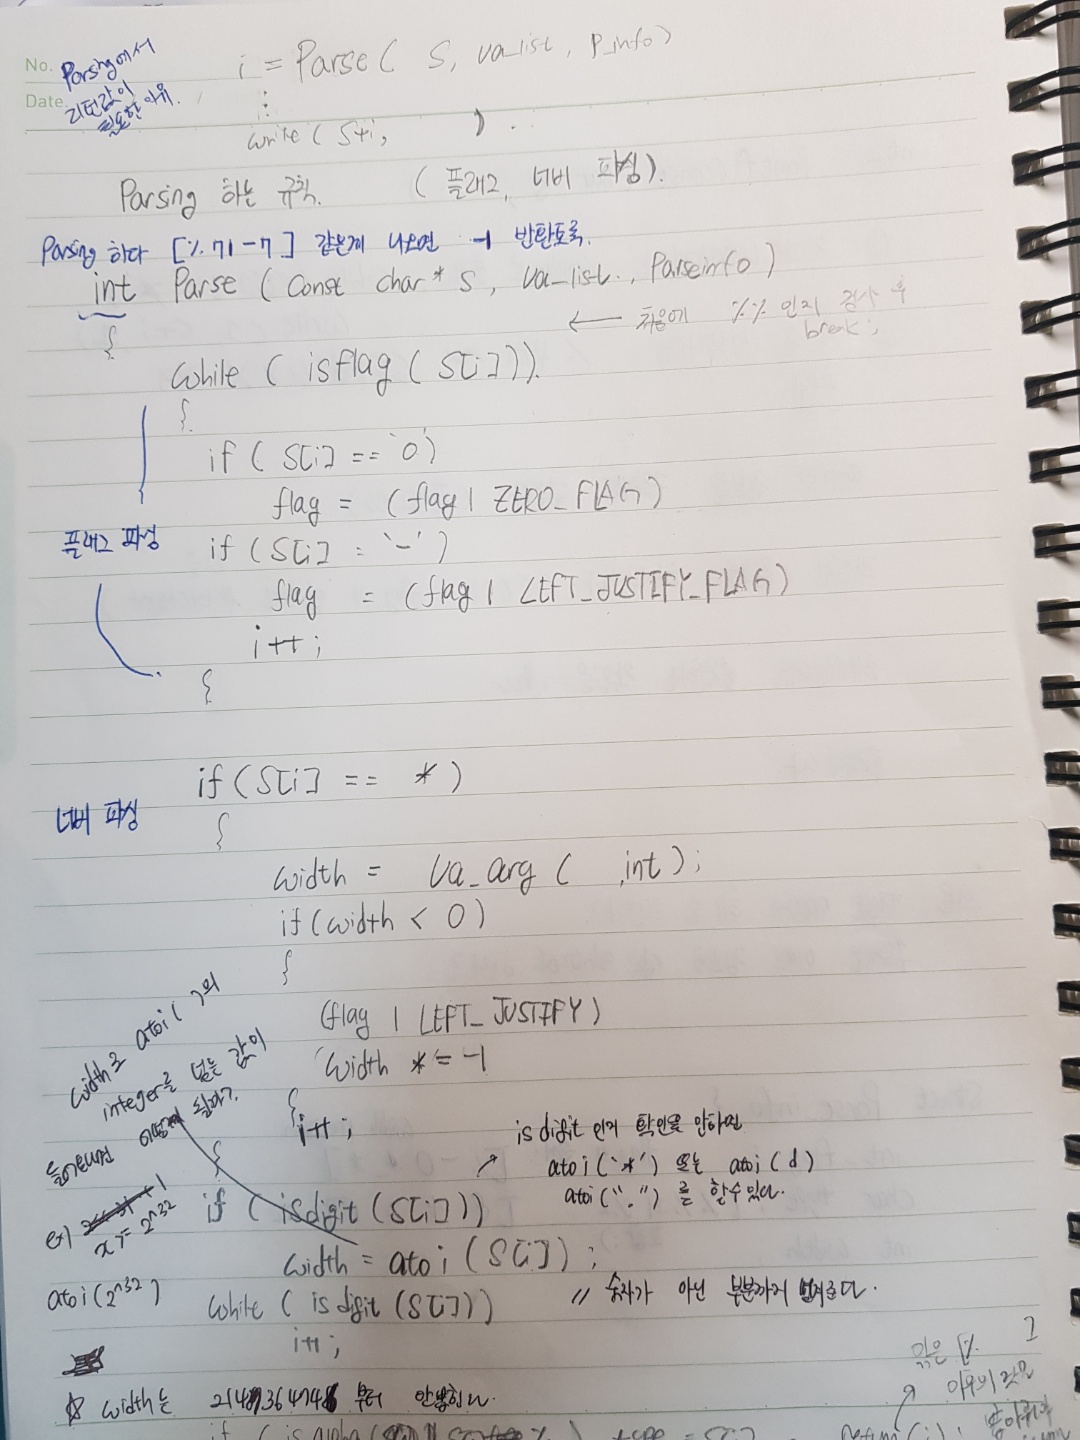 No. Parsing에서
Date. 리턴값이
필요한 이유.
i = Parse( S, va_list, P_info)
:
write( S+i, ) .
Parsing 하는 규칙. ( 플래그, 너비 파싱).
Parsing 하다 [% 71-7] 같은게 나오면 -1 반환토록.
int Parse ( Const char* S, va_list., Parseinfo )
{ ← 처음에 %% 인지 검사 후
break;
while ( isflag ( S[i])).
{
if ( S[i] == '0')
flag = (flag | ZERO_FLAG)
플래그 파싱
if (S[i] = '-')
flag = (flag | LEFT_JUSTIFY_FLAG)
i++;
{
if (S[i] == *)
너비 파싱
{
width = va_arg ( ,int);
if (width < 0)
{
(flag | LEFT_JUSTIFY)
width *= -1
{
i++;
}
width로 atoi( )의
integer를 넘는 값이
들어오면 어떻게 될까?
ex) x >= 2^32
atoi(2^32)
is digit 인지 확인을 안하면
atoi('*') 또는 atoi(d)
atoi(".") 를 할수있다.
if ( isdigit (S[i]))
width = atoi (S[i]);
while ( is digit (S[i])) // 숫자가 아닌 부분까지 넘겨준다.
i++;
☆ width는 2147364748 부터 안봥힌다.
같은 [% ]
이후의 값으로
if ( is alpha ( type = S[i] return (i);